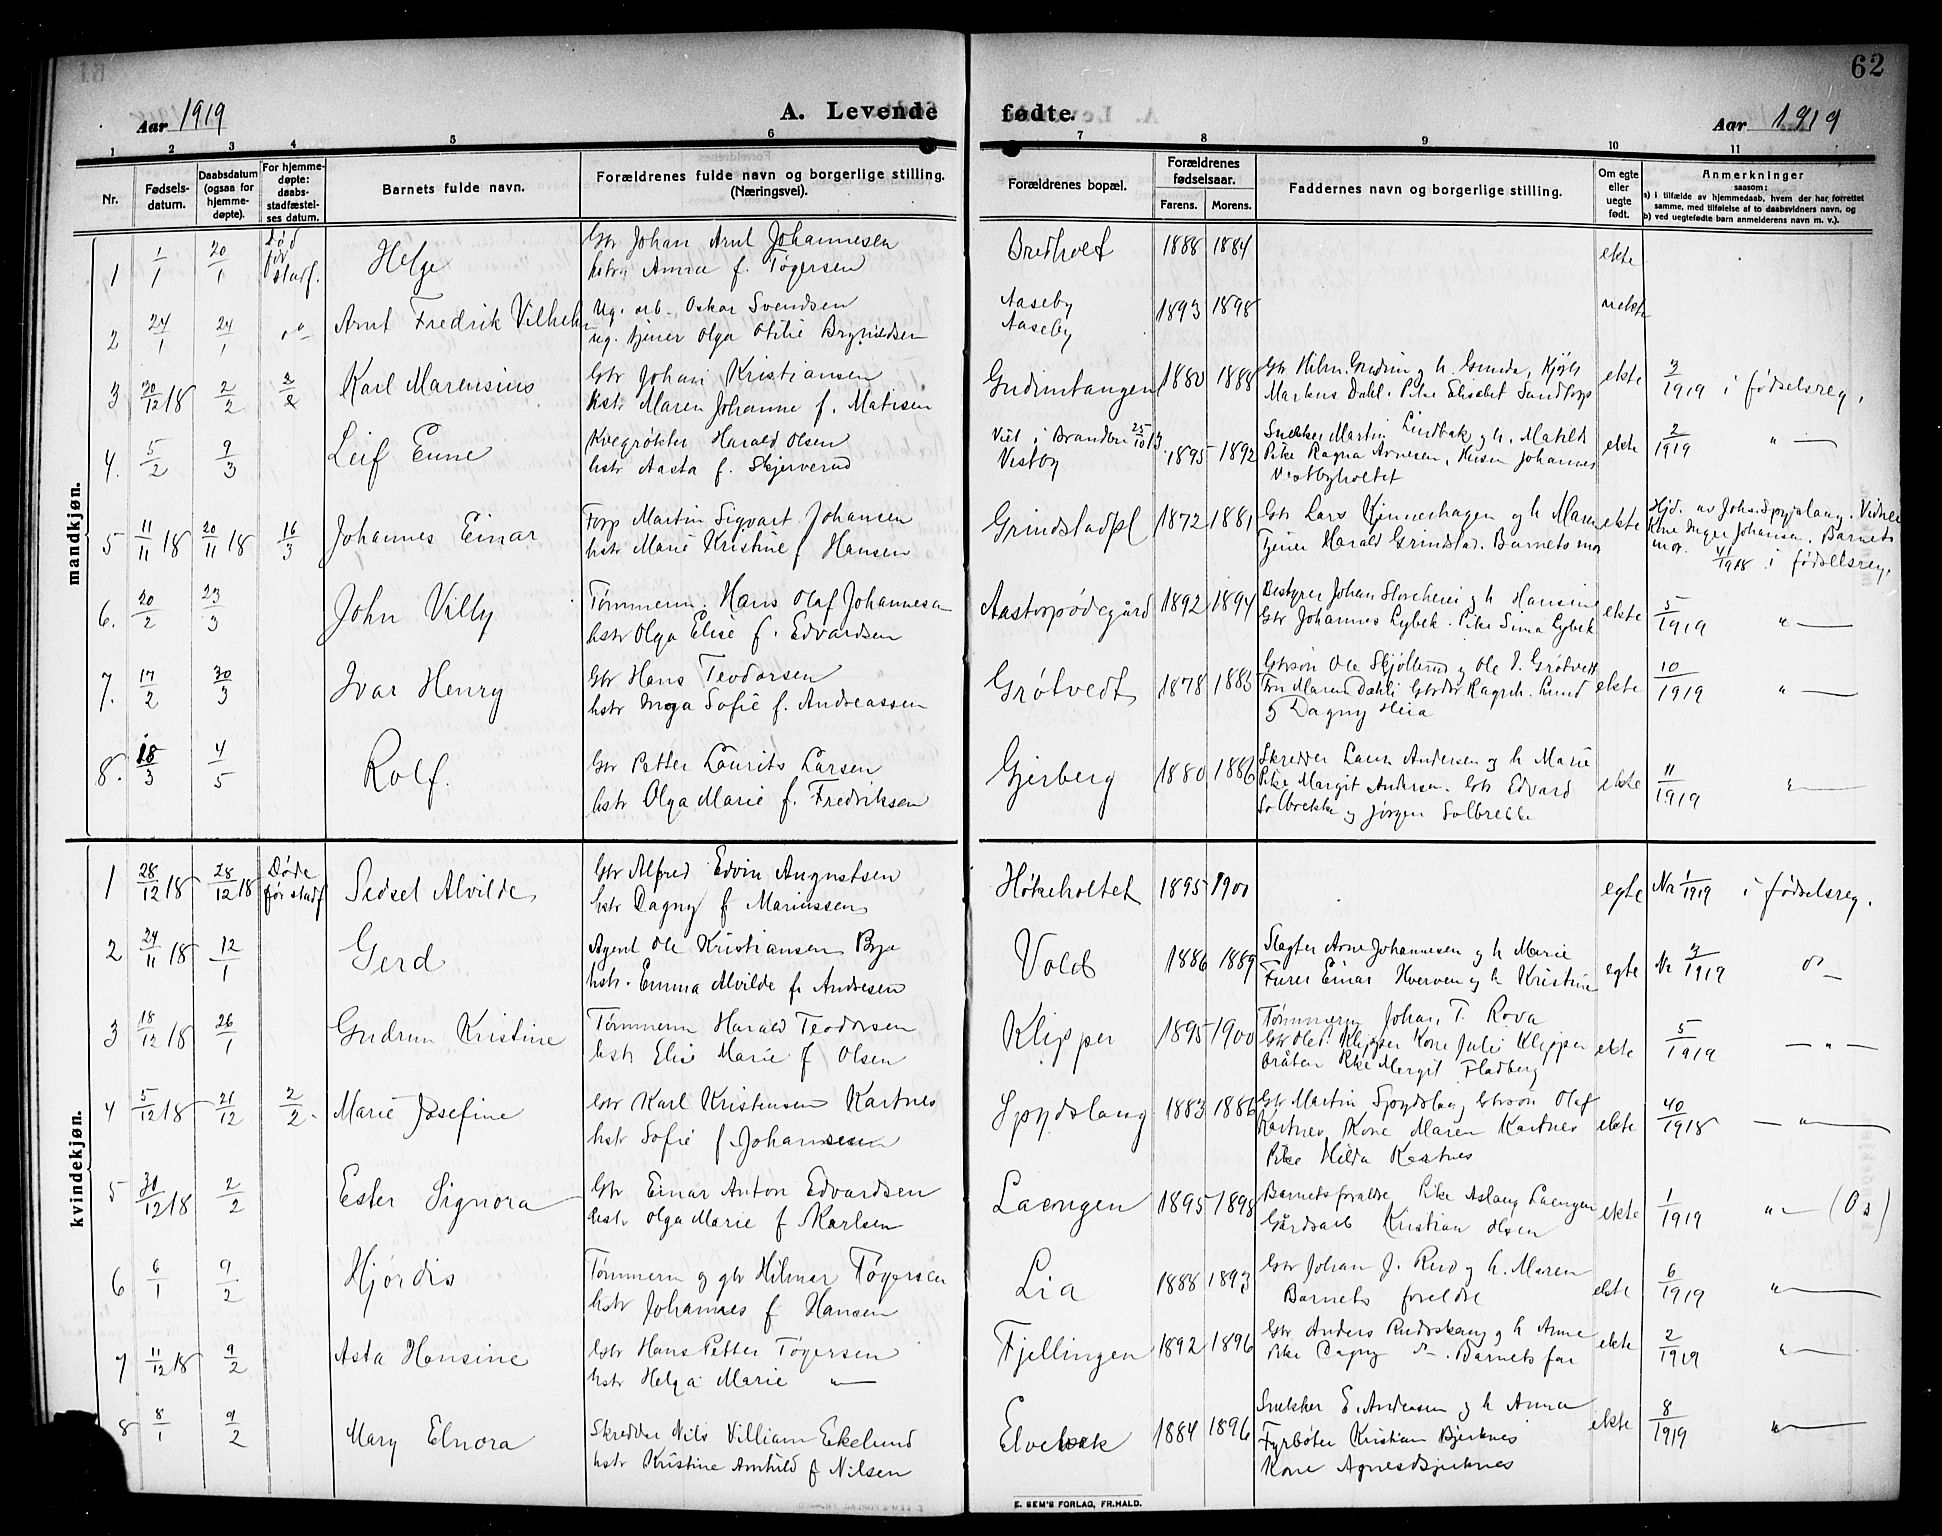 62
Aar 1919
A. Levende
fødte.
Aar 1919
1 2 3 4 5 6 7 8 9 10 11
Nr.
Fødsels-
datum.
Daabsdatum
(ogsaa for
hjemme-
døpte).
For hjemme-
døpte:
daabs-
stadfæstel-
ses datum.
Barnets fulde navn.
Forældrenes fulde navn og borgerlige stilling.
(Næringsvei).
Forældrenes bopæl.
Forældrenes
fødselsaar.
Farens. Morens.
Faddernes navn og borgerlige stilling.
Om egte
eller
uegte
født.
Anmerkninger
saasom:
a) i tilfælde av hjemmedaab, hvem der har forrettet
samme, med tilføielse af to daabsvidners navn, og
b) ved uegtefødte barn anmelderens navn m. v.).
mandkjøn.
1 1/1 20/1 Død før stadf. Helge
Gbr Johan Arnt Johannesen
hstru Anna f. Tøgersen
Bredholt 1888 1884 ekte
2 24/1 24/1 Arnt Fredrik Vilhelm
Ug. arb. Oskar Svendsen
ug. tjener Olga Otilie Brynildsen
Aaseby
Aaseby
1893 1898 uekte
3 30/12 18 2/2 2/2 Karl Marensius
Gbr Johan Kristiansen
hstr Maren Johanne f. Matisen
Gudimtangen 1880 1888
Markus Dahl. Pike Elisabet Sandtorp
ekte 3/1919 i fødselsreg.
4. 5/2 9/3 Leif Enne
Kvegrøkter Harald Olsen
hstr Aasta f. Skjerverud
Viet i Branden 25/10 13.
Vestby 1895 1892
Snekker Martin Lindbæk og h. Matild
Pike Ragna Arnesen, Husm Johannes
Vestbyholtet
ekte 2/1919 " —
5 11/11 18 20/11 18 16/3 Johannes Einar
Forp Martin Sigvart Johansen
hstr Marie Kristine f Hansen
Grindstadpl 1872 1881
Gbr Lars Kjinnerhagen og h Maren
Tjener Harald Grindstad. Barnets mor
ekte
Hjd. av Johs. Spydslaug. Vidner
Kone Inger Johansen. Barnets
mor. 41/1918 i fødselsreg.
6. 20/2 23/3 John Villy
Tømmerm. Hans Olaf Johannesen
hstr Olga Elise f. Edvardsen
Aastorpødegård 1892 1894
Gbr Johannes Lybek. Pike Sina Lybek
ekte 5/1919 " —
7. 17/2 30/3 Ivar Henry
Gbr Hans Teodorsen
hstr Inga Sofie f. Andreassen
Grøtvedt 1878 1883
Gbrsøn Ole Skjøllerud og Ole J. Grøtvett
Frn Maren Dæhli Gbrdtr Ragnh. Lund
5 Dagny Heia
ekte 10/1919 " —
8. 18/3 4/5 Rolf.
Gbr Petter Laurits Larsen
hstr Olga Marie f. Fredriksen
Gjerberg 1880 1886
Skredder Laur. Andersen og h Marie
Pike Margit Andersen. Gbr Edvard
Solbrekke og Jørgen Solbrekke
ekte 11/1919 " —
kvindekjøn.
1 28/12 18 28/12 18 Døde før stadf Sidsel Alvilde
Gbr Alfred Edvin Augustsen
hstr Dagny f Mariussen
Høkeholtet 1895 1900 egte Nr 1/1919 i fødselsreg.
2 24/11 18 12/1 Gerd
Agent Ole Kristiansen Bye
hstr. Emma Alvilde f. Andresen
Vold 1886 1889
Slagter Arne Johannesen og h Marie
Furer Einar Hverven og h Kristine
egte Nr 3/1919
3 18/12 18 26/1 Gudrun Kristine
Tømmerm Harald Teodorsen
hstr Elise Marie f Olsen
Klipper 1895 1900
Tømmerm Johan. T. Rova
Gbr Olet. Klipper Kone Juli Klipper
bråten Pike Margit Fladberg
ekte 5/1919 — " —
4 5/12 18 21/12 2/2. Marie Josefine
Gbr Karl Kristensen Kartnes
hstr Sofie f Johannesen
Spydslaug 1883 1886
Gbr Martin Spydslaug Gbrsøn Olaf
Kartnes, Kone Maren Kartnes
Pike Hilda Kartnes
ekte 40/1918 — " —
5 30/12 18 2/2 Ester Signora
Gbr Einar Anton Edvardsen
hstr Olga Marie f Karlsen
Laengen 1895 1898
Barnets foraldre Pike Aslaug Laengen
Gårdsarb Kristian Olsen
ekte 1/1919 " — (Os)
6 6/1 9/2 Hjørdis
Tømmerm og gbr Hilmar Tøgersen
hstr Johannes f Hansen
Lia 1888 1893
Gbr Johan J. Rud og h. Maren
Barnets foreldre
ekte 6/1919 " —
7 11/12 18 9/2 Asta Hansine
Gbr Hans Petter Tøgersen
hstr Helga Marie " —
Fjellingen 1892 1896
Gbr Anders Rudsskaug og h Anne
Pike Dagny do —. Barnets far
ekte 2/1919 " —
8 8/1 9/2 Mary Elnora
Skredder Nils Villiam Ekelund
hstr Kristine Arnhild f Nilsen
Elvebak 1884 1896
Snekker E. Andersen og h Anna
Fyrbøter Kristian Bjerknes
Kone Agnes Bjerknes
ekte 8/1919 " —
E. SEM'S FORLAG, FR.HALD.